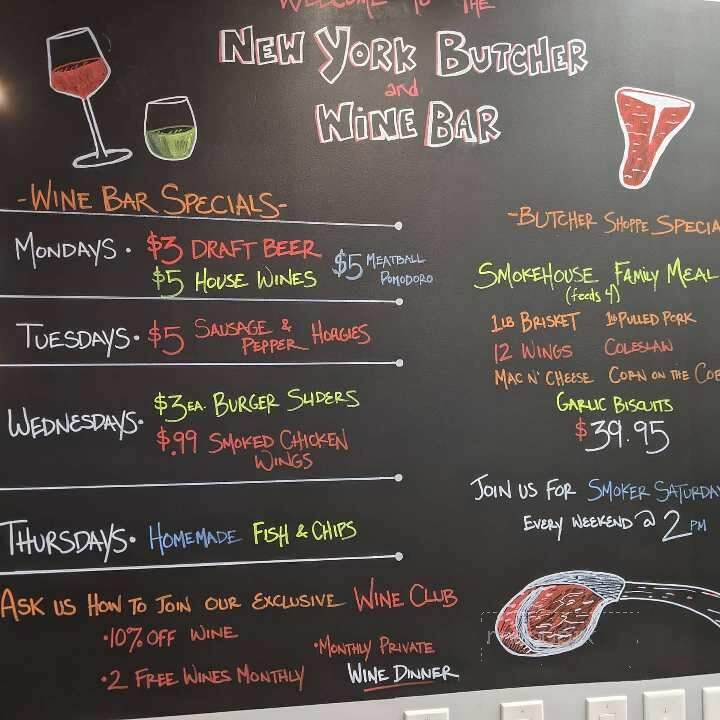 WELCOME TO THE
NEW YORK BUTCHER
and
WINE BAR
-WINE BAR SPECIALS-
MONDAYS · $3 DRAFT BEER
$5 HOUSE WINES
$5 MEATBALL
POMODORO
TUESDAYS · $5 SAUSAGE & PEPPER HOAGIES
WEDNESDAYS · $3 EA. BURGER SLIDERS
$.99 SMOKED CHICKEN
WINGS
THURSDAYS · HOMEMADE FISH & CHIPS
ASK US HOW TO JOIN OUR EXCLUSIVE WINE CLUB
·10% OFF WINE
·2 FREE WINES MONTHLY
·MONTHLY PRIVATE
WINE DINNER
-BUTCHER SHOPPE SPECIA
SMOKEHOUSE FAMILY MEAL
(feeds 4)
1LB BRISKET 1LB PULLED PORK
12 WINGS COLESLAW
MAC N' CHEESE CORN ON THE COB
GARLIC BISCUITS
$39.95
JOIN US FOR SMOKER SATURDAY
EVERY WEEKEND @ 2 PM